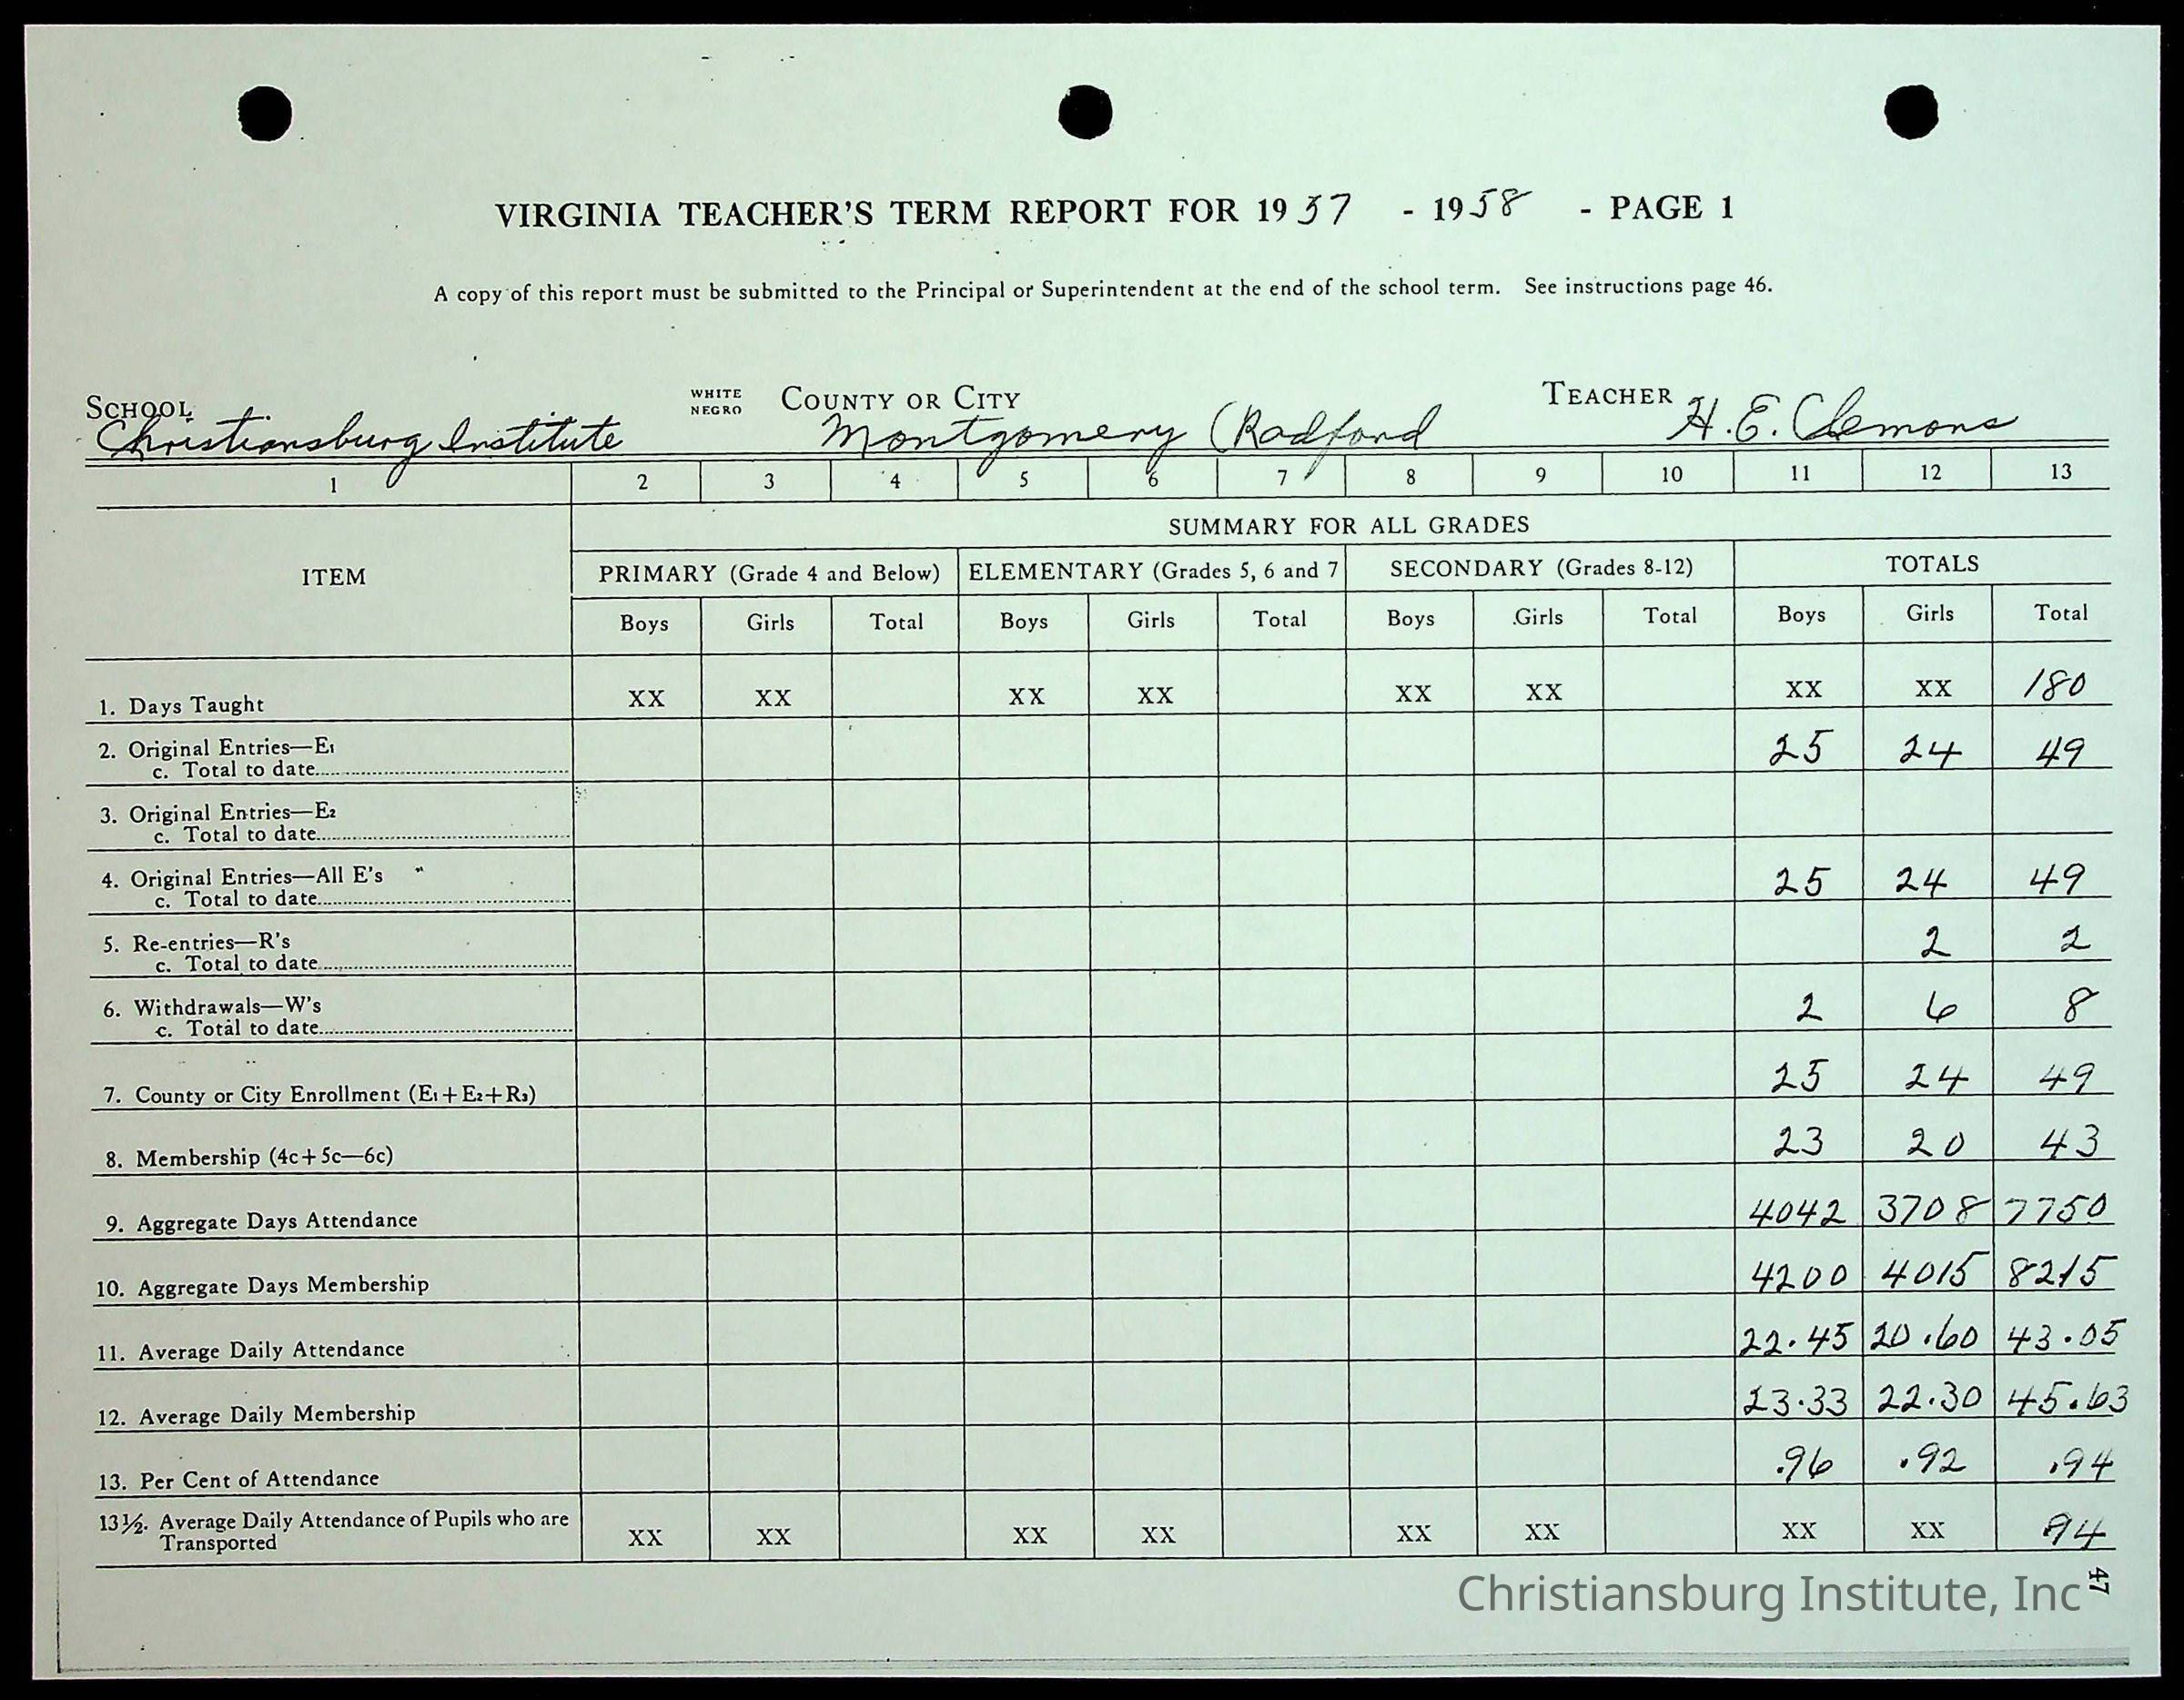 VIRGINIA TEACHER'S TERM REPORT FOR 1957 - 1958 - PAGE 1
A copy of this report must be submitted to the Principal or Superintendent at the end of the school term. See instructions page 46.
SCHOOL Christiansburg Institute WHITE NEGRO COUNTY OR CITY Montgomery (Radford TEACHER H. E. Clemons
1 2 3 4 5 6 7 8 9 10 11 12 13
SUMMARY FOR ALL GRADES
ITEM PRIMARY (Grade 4 and Below) ELEMENTARY (Grades 5, 6 and 7 SECONDARY (Grades 8-12) TOTALS
Boys Girls Total Boys Girls Total Boys Girls Total Boys Girls Total
1. Days Taught XX XX XX XX XX XX XX XX 180
2. Original Entries—E1
c. Total to date 25 24 49
3. Original Entries—E2
c. Total to date
4. Original Entries—All E's
c. Total to date 25 24 49
5. Re-entries—R's
c. Total to date 2 2
6. Withdrawals—W's
c. Total to date 2 6 8
7. County or City Enrollment (E1+E2+R3) 25 24 49
8. Membership (4c+5c—6c) 23 20 43
9. Aggregate Days Attendance 4042 3708 7750
10. Aggregate Days Membership 4200 4015 8215
11. Average Daily Attendance 22.45 20.60 43.05
12. Average Daily Membership 23.33 22.30 45.63
13. Per Cent of Attendance .96 .92 .94
13½. Average Daily Attendance of Pupils who are
Transported XX XX XX XX XX XX XX XX 94
47
Christiansburg Institute, Inc